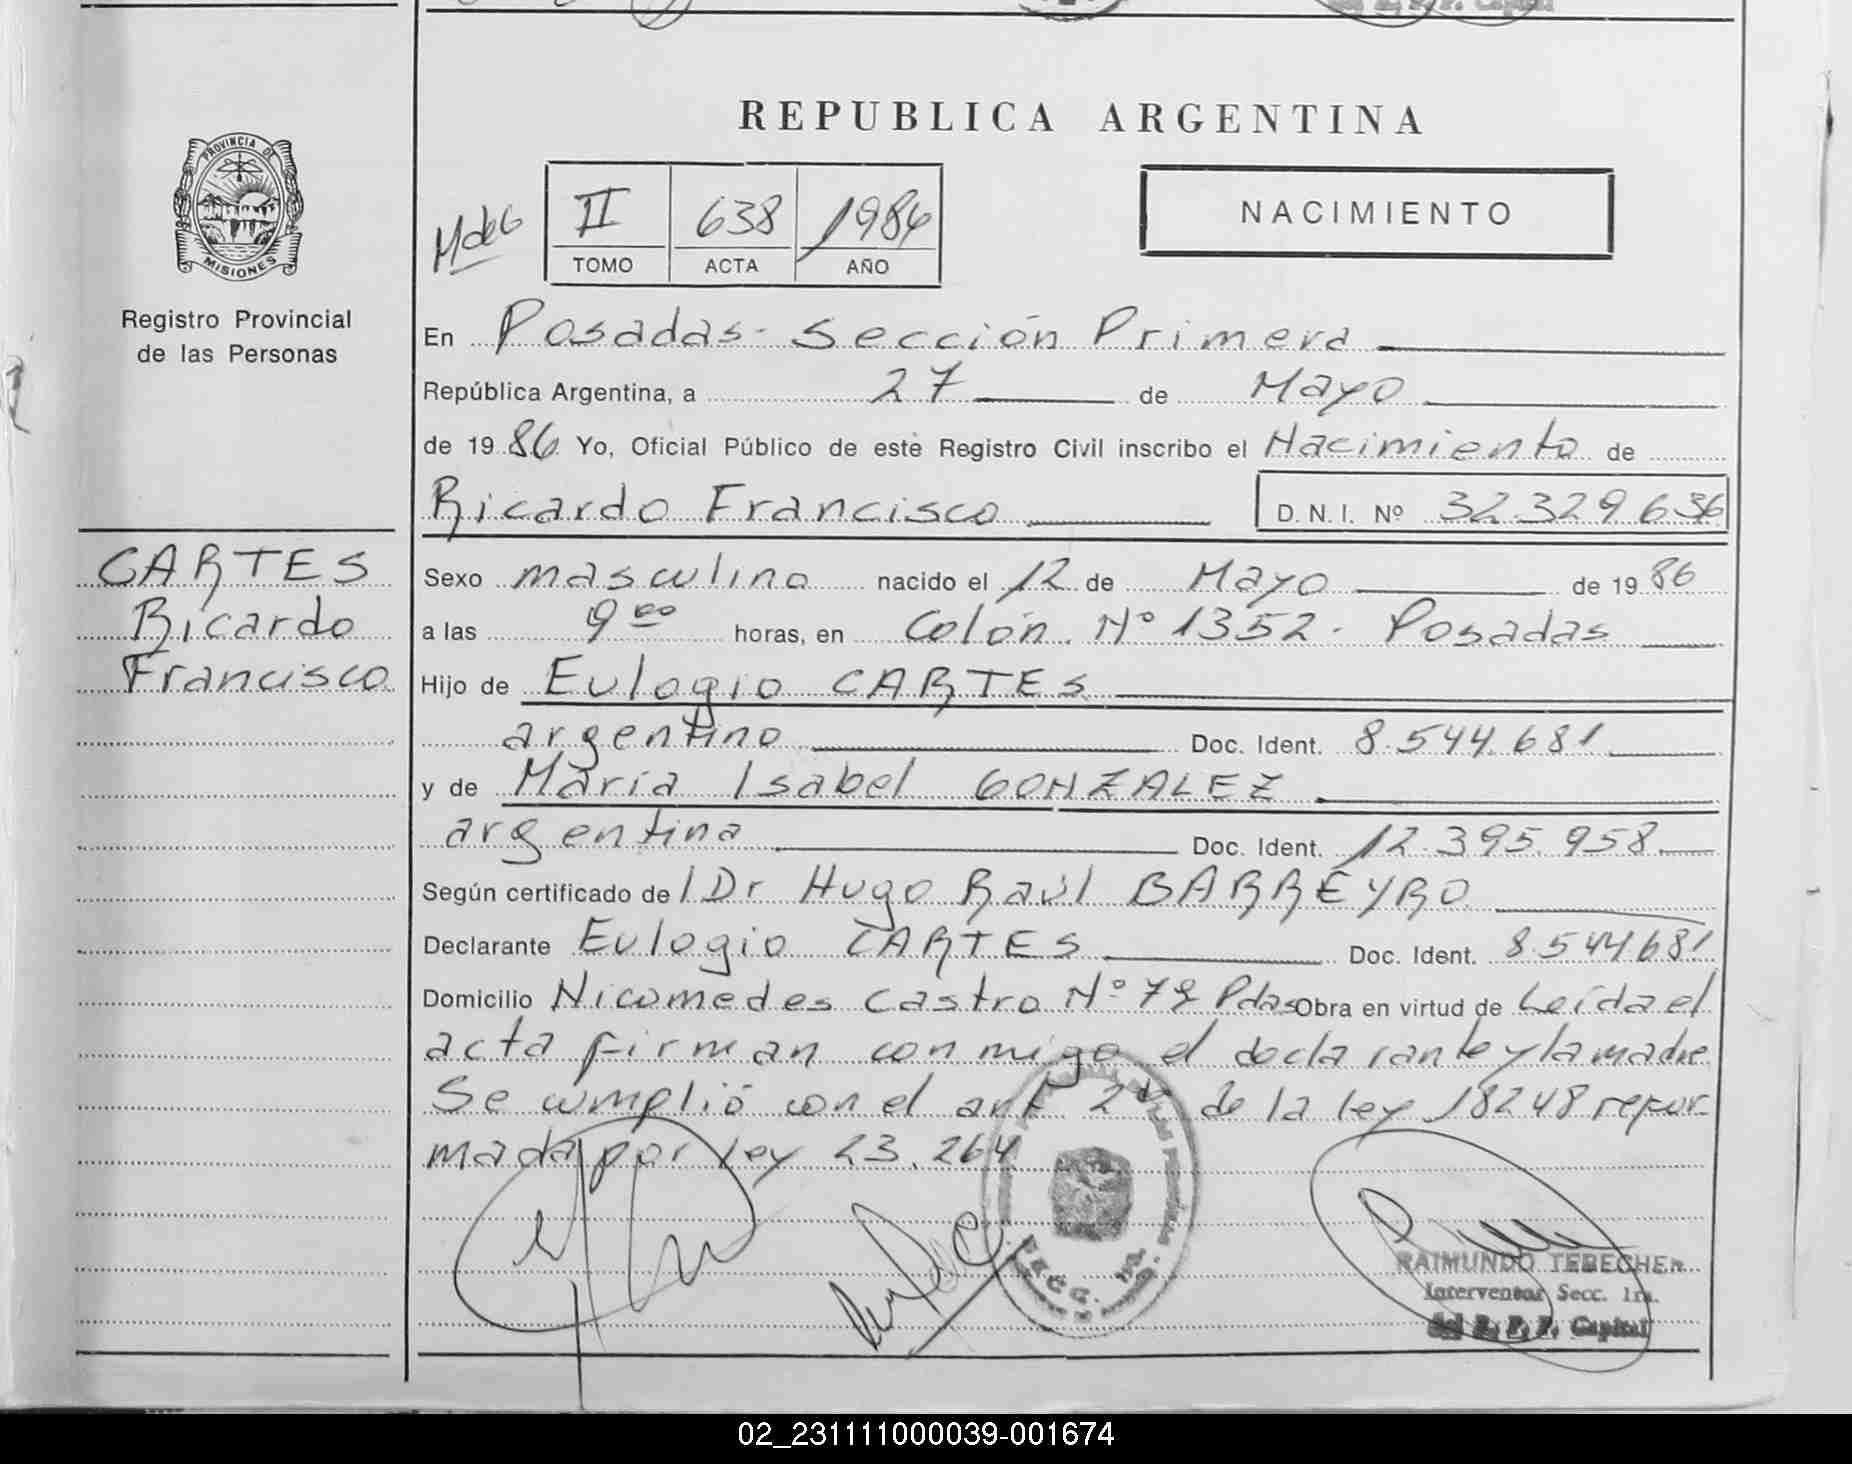 REPUBLICA ARGENTINA
PROVINCIA DE
MISIONES
Registro Provincial
de las Personas
II 638 1986
TOMO ACTA AÑO
NACIMIENTO
En Posadas - Sección Primera
República Argentina, a 27 de Mayo
de 1986 Yo, Oficial Público de este Registro Civil inscribo el Nacimiento de
Ricardo Francisco D. N. I. Nº 32 329 636
CARTES
Ricardo
Francisco
Sexo masculino nacido el 12 de Mayo de 1986
a las 9 00 horas, en Colón Nº 1352 - Posadas
Hijo de Eulogio CARTES
argentino Doc. Ident. 8.544.681
y de María Isabel GONZALEZ
argentina Doc. Ident. 12.395.958
Según certificado del Dr Hugo Raúl BARREYRO
Declarante Eulogio CARTES Doc. Ident. 8.544.681
Domicilio Nicomedes Castro Nº Pdas Obra en virtud de Leída el
acta firman conmigo el declarante y la madre
Se cumplió con el art 2do de la ley 18248 refor-
mada por ley 23.264
RAIMUNDO
Interventor Secc. 1ra.
Capital
02_231111000039-001674